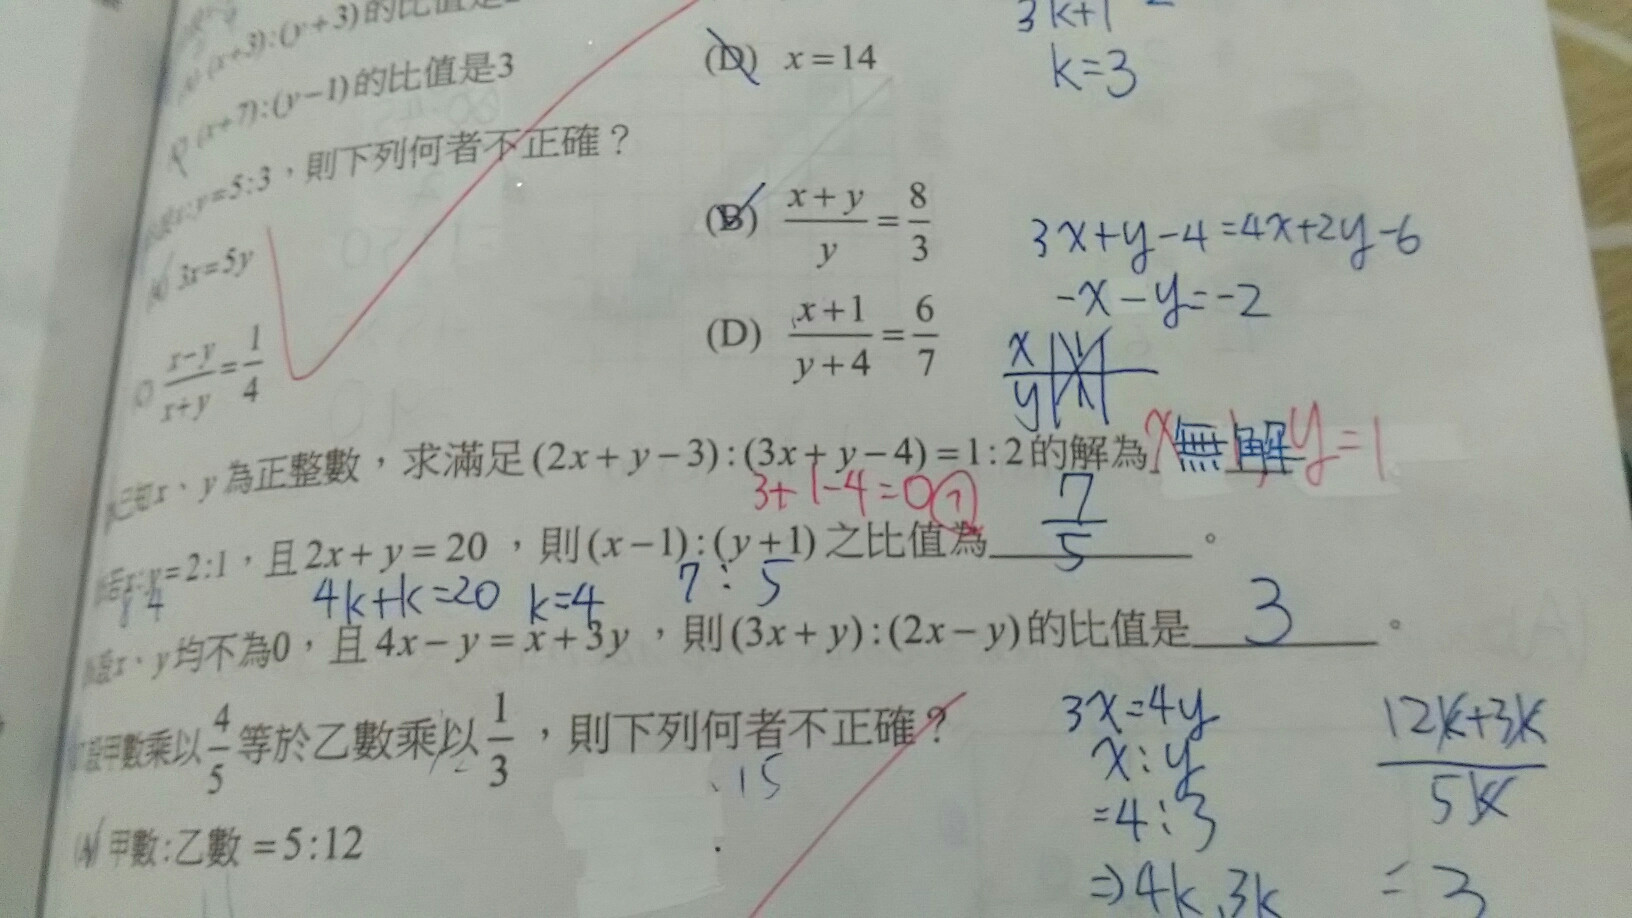 (x+3):(y+3)的比值是
3k+1
(D) x=14
k=3
(x+7):(y−1)的比值是3
x:y=5:3,則下列何者不正確?
3x=5y
(B) \frac{x+y}{y}=\frac{8}{3}
3x+y-4=4x+2y-6
-x-y=-2
\frac{x-y}{x+y}=\frac{1}{4}
(D) \frac{x+1}{y+4}=\frac{6}{7}
x
y
已知x、y為正整數,求滿足(2x+y−3):(3x+y−4)=1:2的解為 無解 y=1
3+1-4=0 ?
若x:y=2:1,且2x+y=20,則(x−1):(y+1)之比值為 \frac{7}{5} 。
8 4 4k+k=20 k=4 7:5
設x、y均不為0,且4x−y=x+3y,則(3x+y):(2x−y)的比值是 3 。
設甲數乘以\frac{4}{5}等於乙數乘以\frac{1}{3},則下列何者不正確?
15
3x=4y
x:y
=4:3
⇒4k,3k
\frac{12k+3k}{5k}
=3
(A) 甲數:乙數=5:12